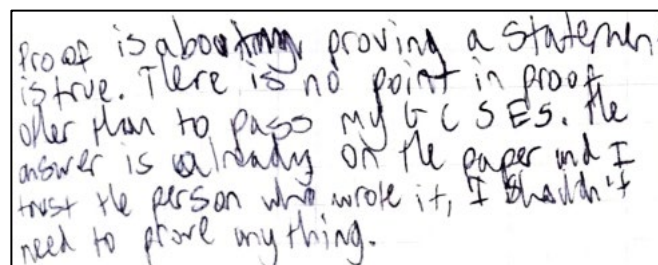 Proof is about proving a statemen
is true. There is no point in proof
other than to pass my GCSES. the
answer is already on the paper and I
trust the person who wrote it, I shouldn't
need to prove anything.